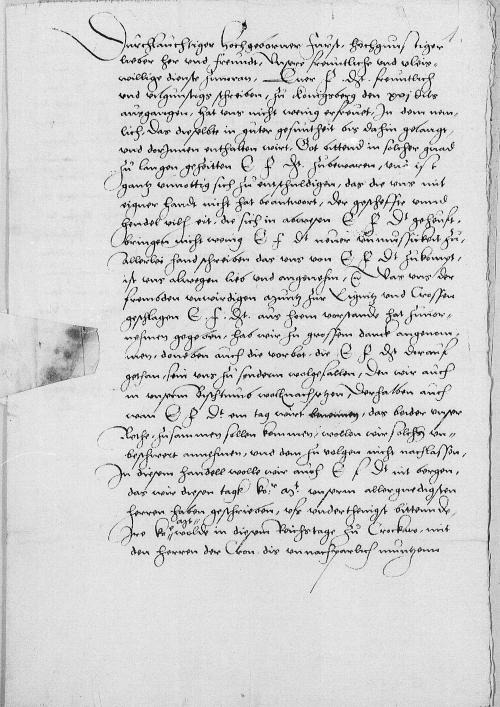 Durchlauchtiger hochgeborner Furst, hochgunstiger
lieber her und freundt, Unsere freuntliche und vleis-
willige dienste zuvoran, Euer F. Dt. freuntlich
und vilgunstigs schreiben, zu Konigsberg den xvj dits
ausgangen, hat uns nicht wenig erfreuet, In dem nem-
lich, das dieselbte in guter gesuntheit bis dahin gelangt,
und dorinnen enthalten wirt, Got bittend in solcher gnad
zu langen gezeitten E F Dt. zubewaren, und ist
gantz unnottig sich zu entschuldigen, das die uns mit
eigner handt nicht hat beantwort, der gescheffte unnd
hendel vilh eit, die sich in abwesen E F Dt gehouft,
brengen nicht wenig E F Dt neuer unmussickeit zu,
Allerlei handschreiben das uns von E F Dt zukompt,
ist uns alwegen lieb und angenehm, Das uns der
frembden unwirdigen muntz zur Lignitz und Crossen
geschlagen E. F. Dt. aus hoem vorstande hat zuvor-
nehmen gegeben, hab wir zu grossem danck angenom-
men, doneben auch die vorbot, die E F Dt derauf
gethan, sein uns zu sondern wolgefallen, Den wir auch
in unserm Bisthumb wollnachsetzen, Derhalben auch
wenn E F Dt ein tag wirt, das beider unser
Rethe zusammen sollen kommen, wollen wir solchs un-
beschwert annehmen, und dem zu volgen nicht nachlassen,
In diesem handell wolle wir auch E F Dt nit bergen,
das wir diesen tagk ko. Mt. unserm allergnedigsten
herren haben geschrieben, ufs underthenigst bittennde,
Ire ko. Mt. wolde in diesem Reichstage zu Crockaw, mit
den herren der Cron die unnachparlich muntzenn